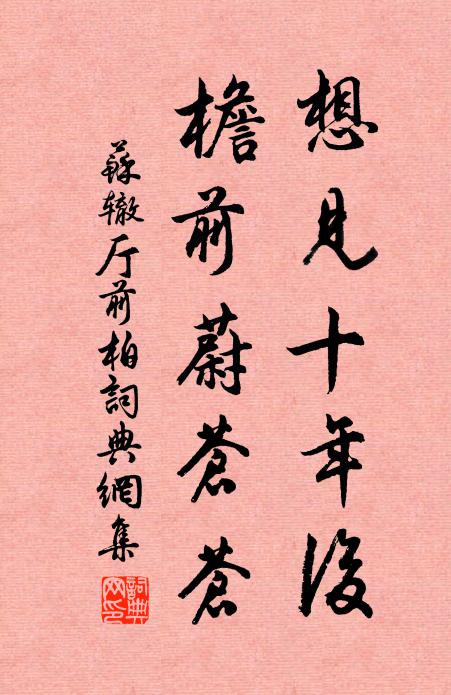 想見十年後
檐前蔚蒼蒼
蘇辙厅前柏詞典網集
詞典网印